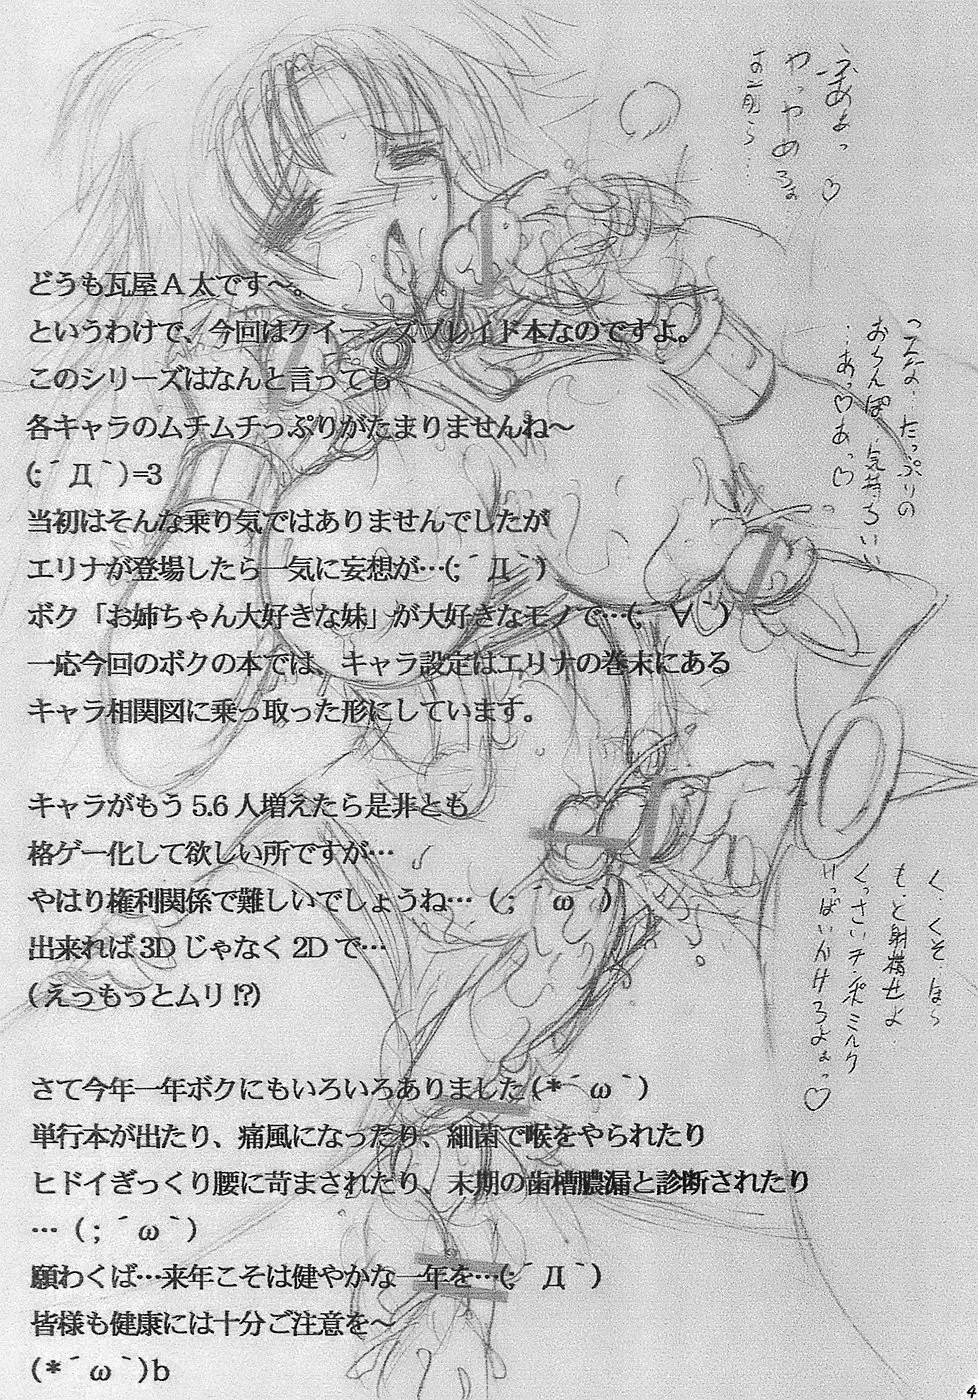 どうも瓦屋A太です～。
というわけで、今回はクイーンズブレイド本なのですよ。
このシリーズはなんと言っても
各キャラのムチムチっぷりがたまりませんね～
(;´Д｀)=3
当初はそんな乗り気ではありませんでしたが
エリナが登場したら一気に妄想が…(;´Д｀)
ボク「お姉ちゃん大好きな妹」が大好きなモノで…(;´∀｀)
一応今回のボクの本では、キャラ設定はエリナの巻末にある
キャラ相関図に乗っ取った形にしています。
キャラがもう5.6人増えたら是非とも
格ゲー化して欲しい所ですが…
やはり権利関係で難しいでしょうね…（;´ω｀）
出来れば3Dじゃなく2Dで…
(えっもっとムリ!?)
さて今年一年ボクにもいろいろありました(*´ω｀)
単行本が出たり、痛風になったり、細菌で喉をやられたり
ヒドイぎっくり腰に苛まされたり、末期の歯槽膿漏と診断されたり
…（;´ω｀）
願わくば…来年こそは健やかな一年を…(;´Д｀)
皆様も健康には十分ご注意を～
(*´ω｀)b
ふあぁっ♡
やっやめろぉ
こんな、たっぷりの
おちんぽ気持ちいい
…あっ♡あっ♡
く、くそ…ほら
もっと射精せよ
くっさいチンポミルク
いっぱいかけろよぉっ♡
4